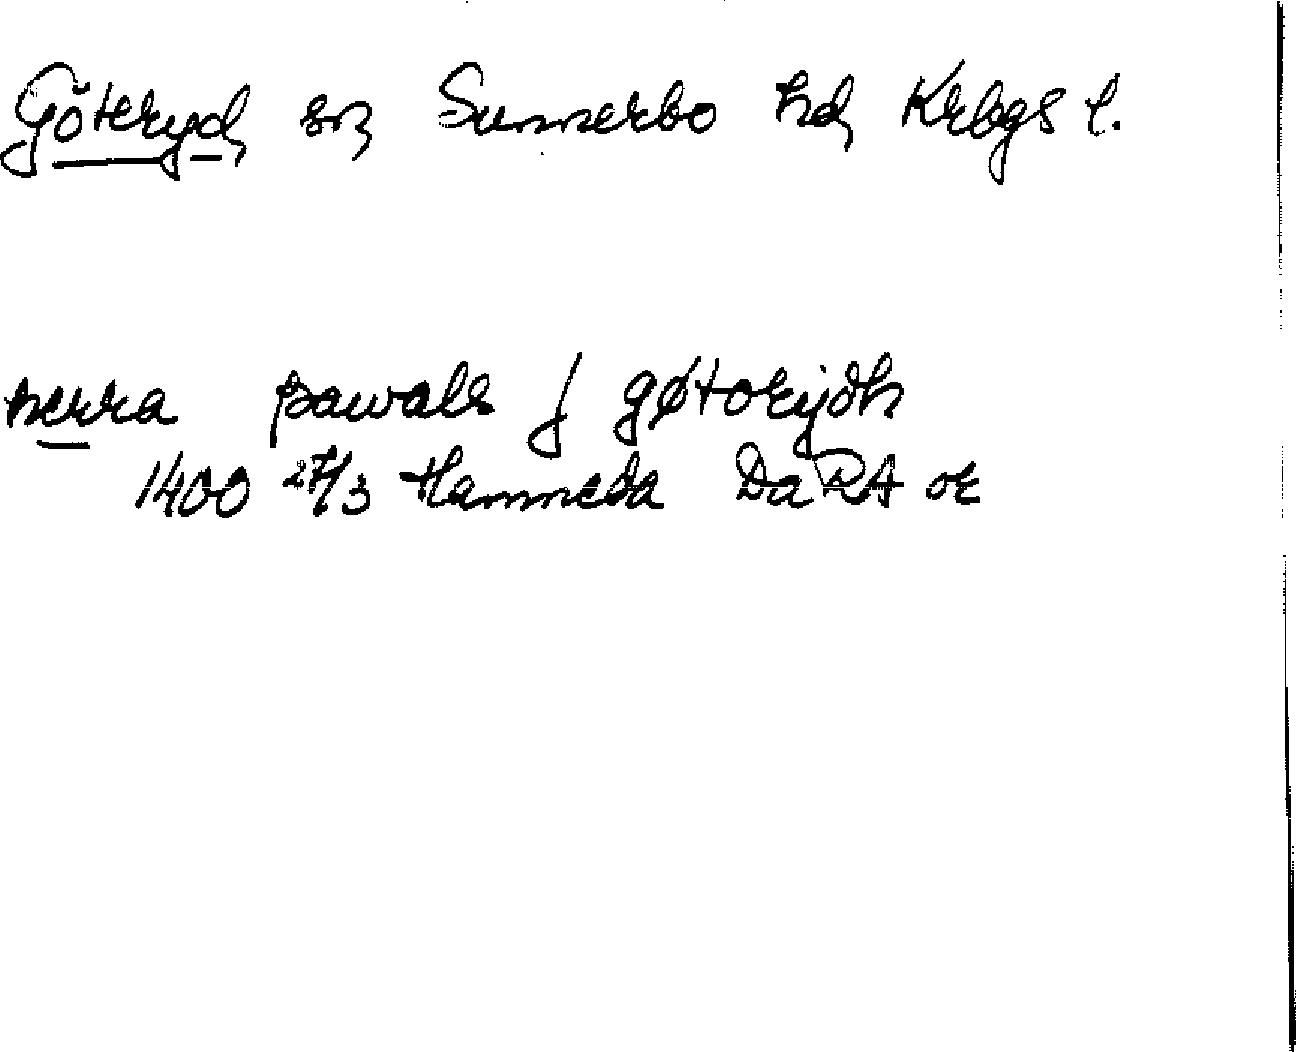 Göteryd, sn, Sunnerbo hd, Krbgs l.
herra pawals j gøtorijdh
1400 27/3 Hamneda DaRA or